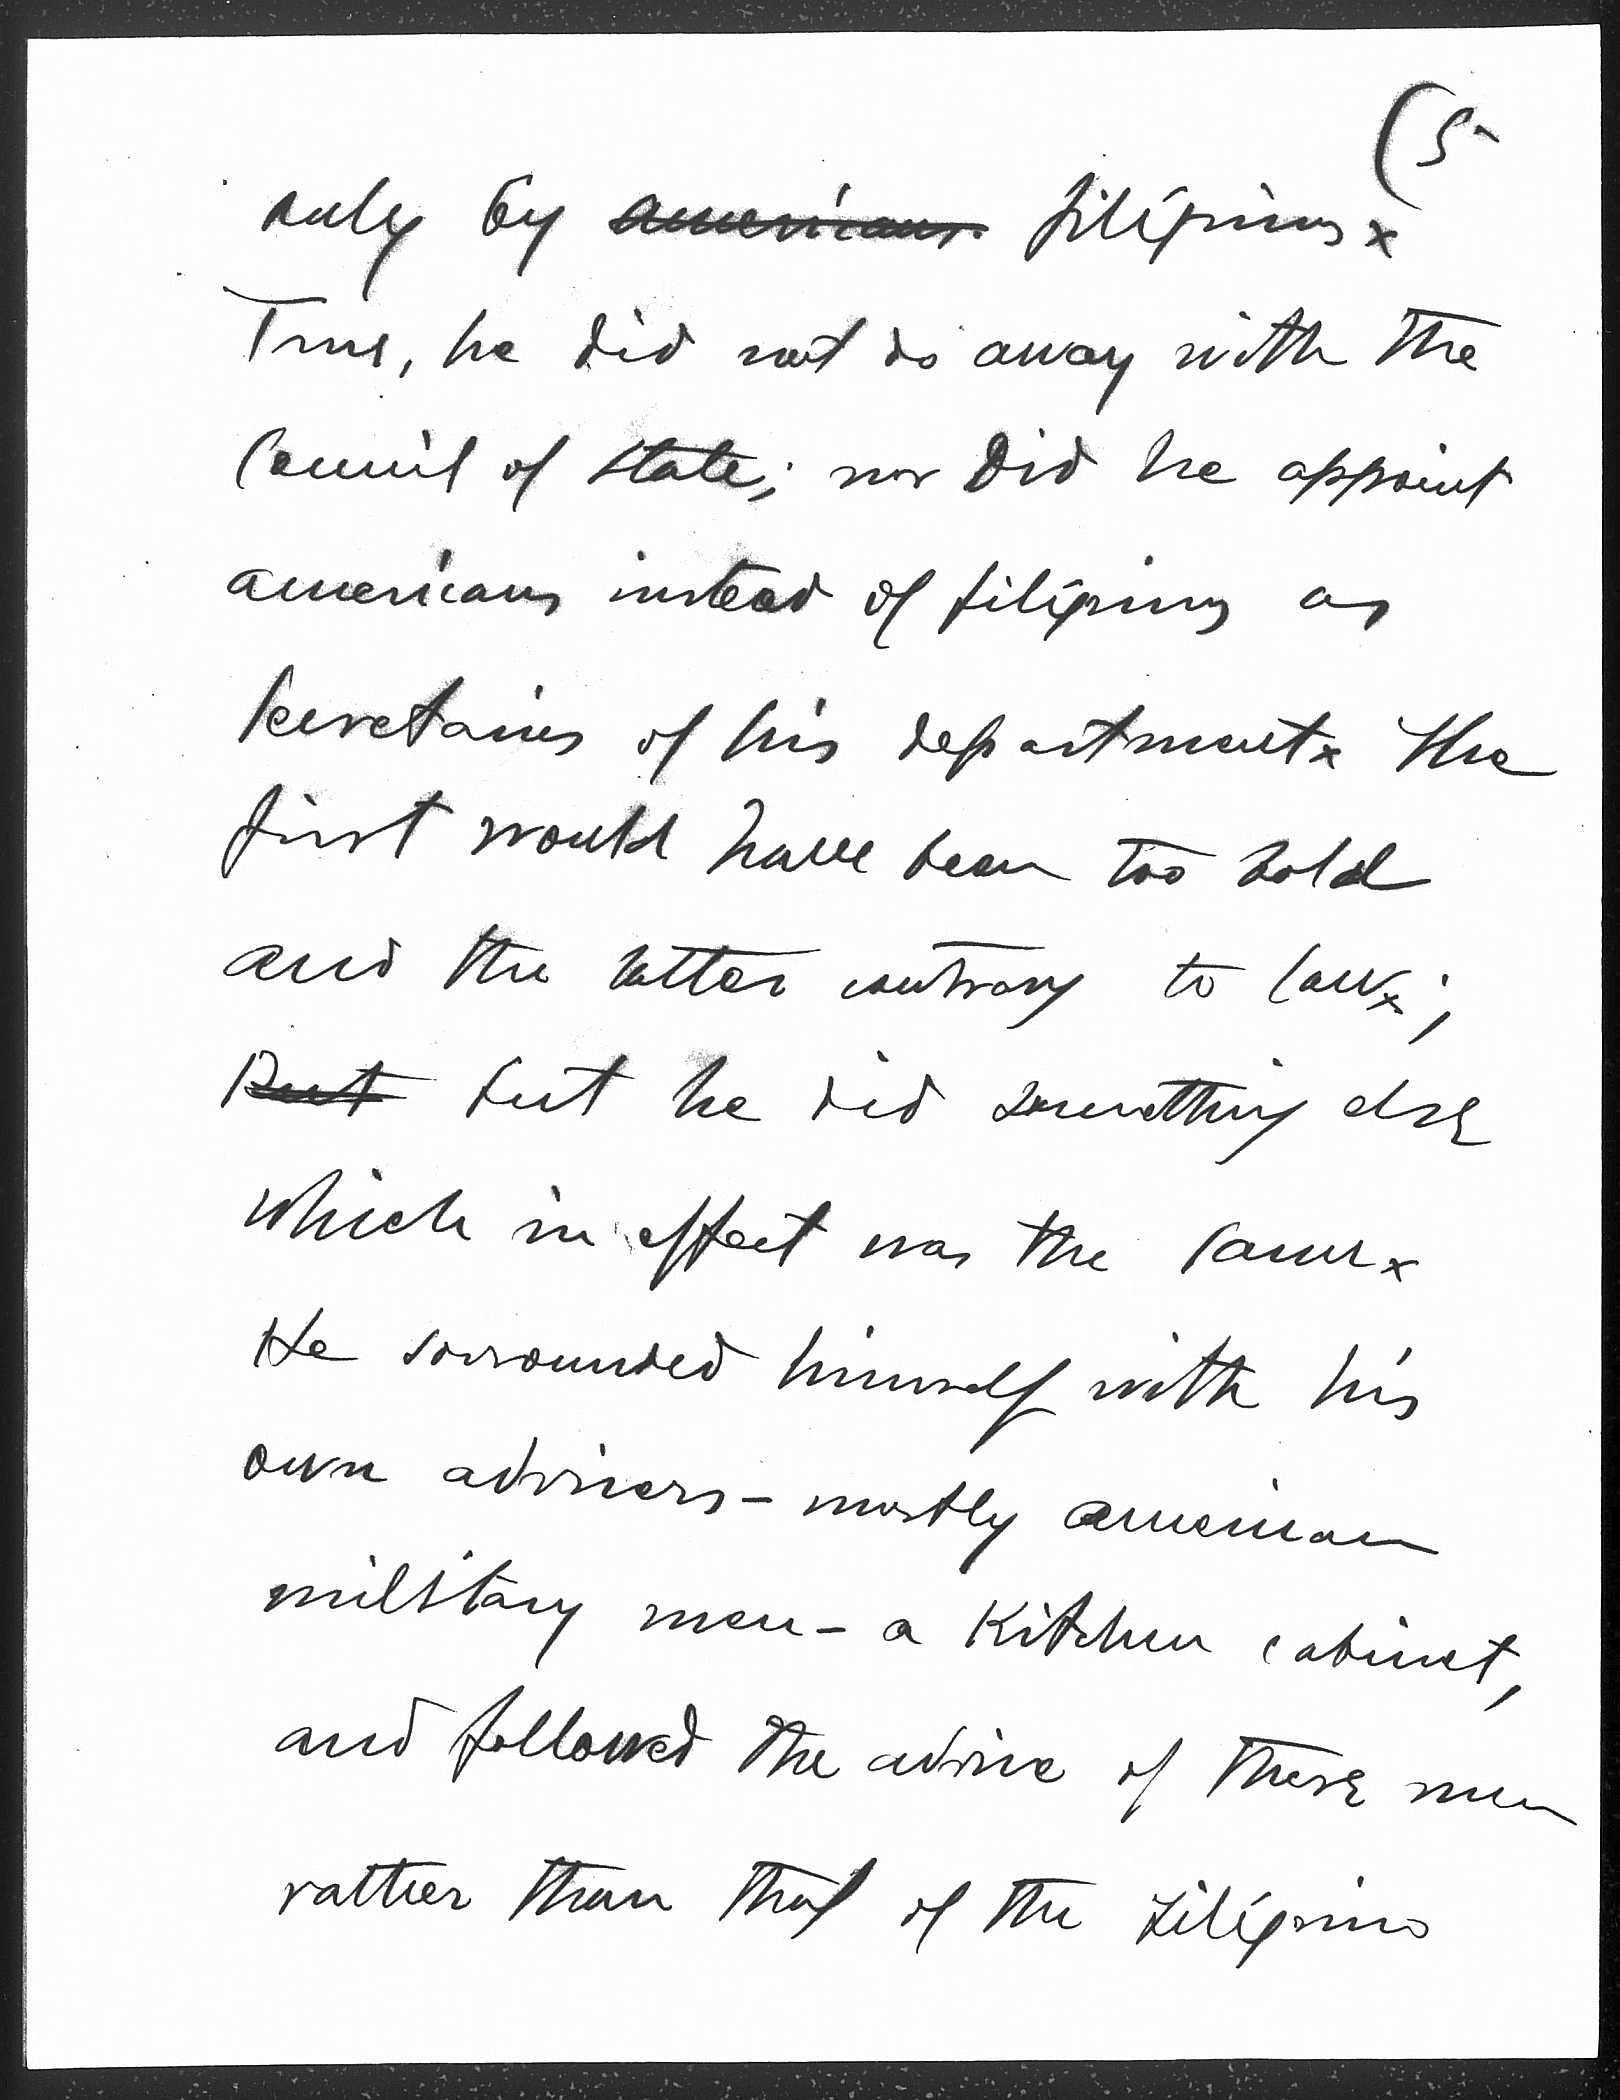 (5
only by americans filipinos x
True, he did not do away with the
Council of state; nor did he appoint
americans instead of filipinos as
Secretaries of his department x The
first would have been too bold
and the latter contrary to law x;
But but he did something else
which in effect was the same x
He sorrounded himself with his
own advisers - mostly american
military men - a Kitchen cabinet,
and followed the advice of these men
rather than that of the Filipino